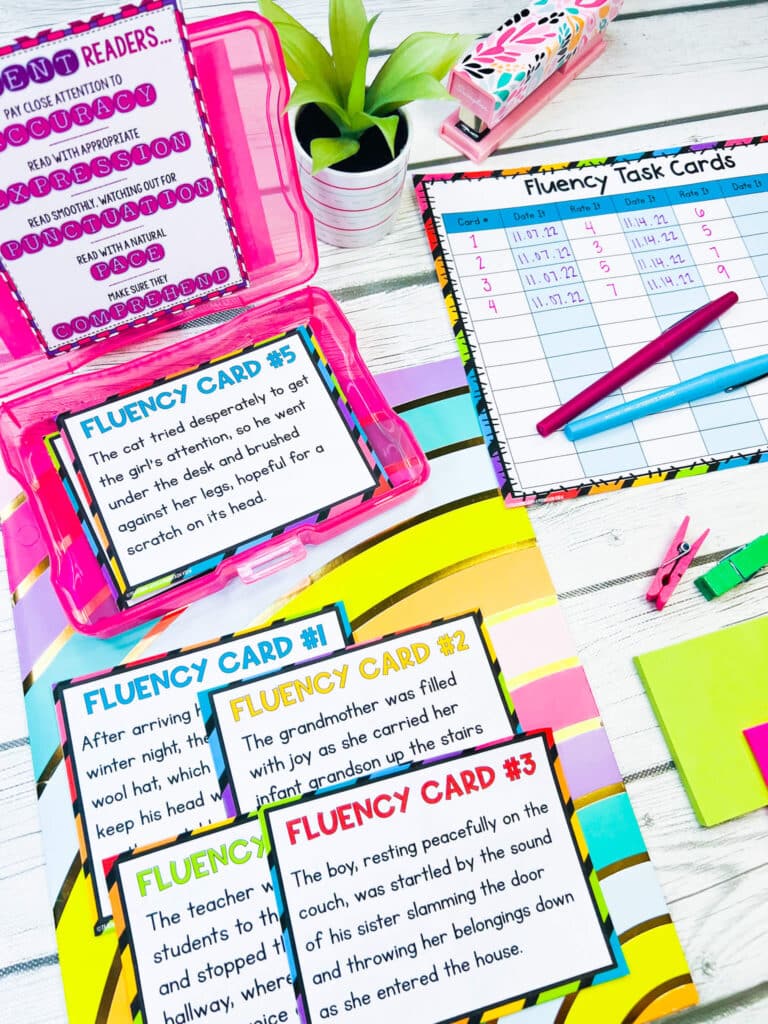 READERS...
PAY CLOSE ATTENTION TO
ACCURACY
READ WITH APPROPRIATE
EXPRESSION
READ SMOOTHLY, WATCHING OUT FOR
PUNCTUATION
READ WITH A NATURAL
PACE
MAKE SURE THEY
COMPREHEND
Fluency Task Cards
Card # Date It Rate It Date It Rate It Date It
1 11.07.22 4 11.14.22 6
2 11.07.22 3 11.14.22 5
3 11.07.22 5 11.14.22 7
4 11.07.22 7 11.14.22 9
FLUENCY CARD #5
The cat tried desperately to get
the girl's attention, so he went
under the desk and brushed
against her legs, hopeful for a
scratch on its head.
FLUENCY CARD #1
After arriving
winter night, the
wool hat, which
keep his head
FLUENCY CARD #2
The grandmother was filled
with joy as she carried her
infant grandson up the stairs
FLUENCY
The teacher
students to the
and stopped
hallway, where
FLUENCY CARD #3
The boy, resting peacefully on the
couch, was startled by the sound
of his sister slamming the door
and throwing her belongings down
as she entered the house.